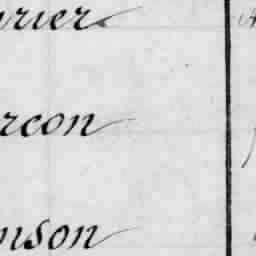 urier
rcon
nson